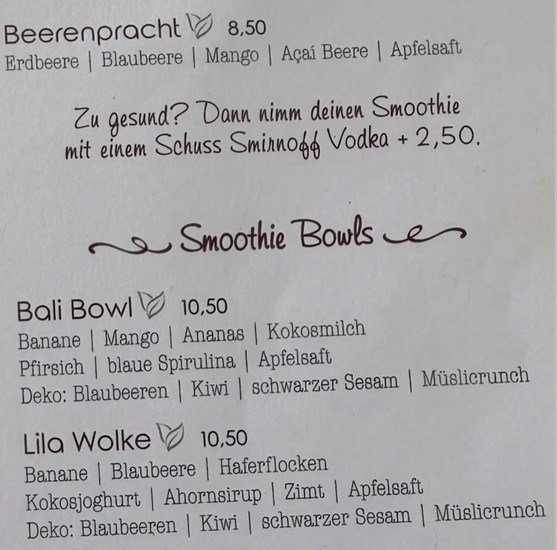 Beerenpracht 8,50
Erdbeere | Blaubeere | Mango | Açaí Beere | Apfelsaft
Zu gesund? Dann nimm deinen Smoothie
mit einem Schuss Smirnoff Vodka + 2,50.
Smoothie Bowls
Bali Bowl 10,50
Banane | Mango | Ananas | Kokosmilch
Pfirsich | blaue Spirulina | Apfelsaft
Deko: Blaubeeren | Kiwi | schwarzer Sesam | Müslicrunch
Lila Wolke 10,50
Banane | Blaubeere | Haferflocken
Kokosjoghurt | Ahornsirup | Zimt | Apfelsaft
Deko: Blaubeeren | Kiwi | schwarzer Sesam | Müslicrunch